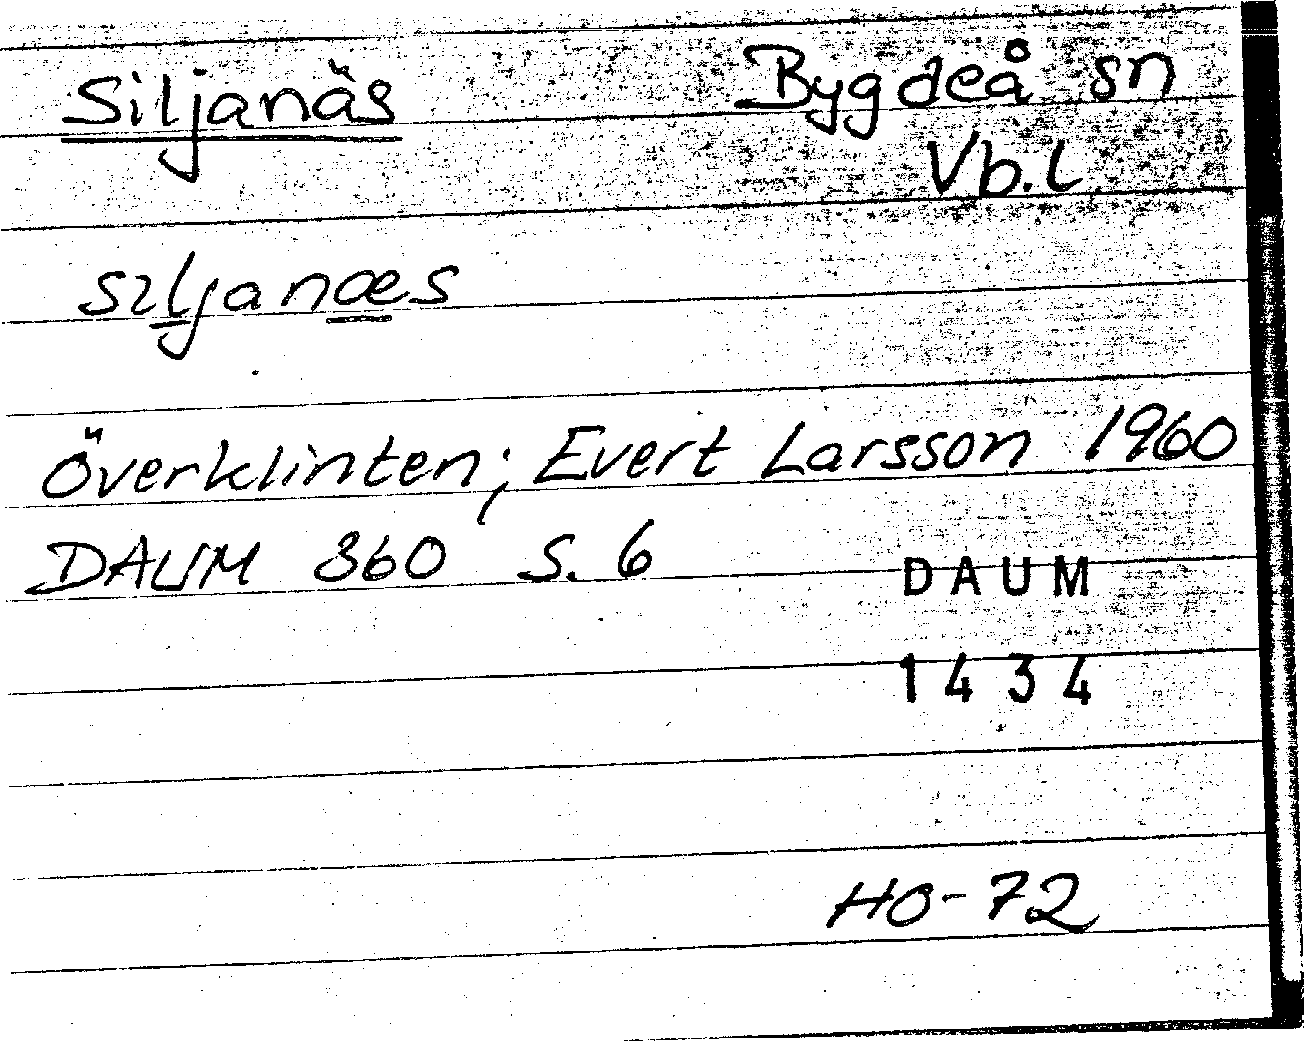 Siljanäs Bygdeå sn
Vb.l
sıljanæs
Överklinten; Evert Larsson 1960
DAUM 360 s. 6
DAUM
1434
HO-72